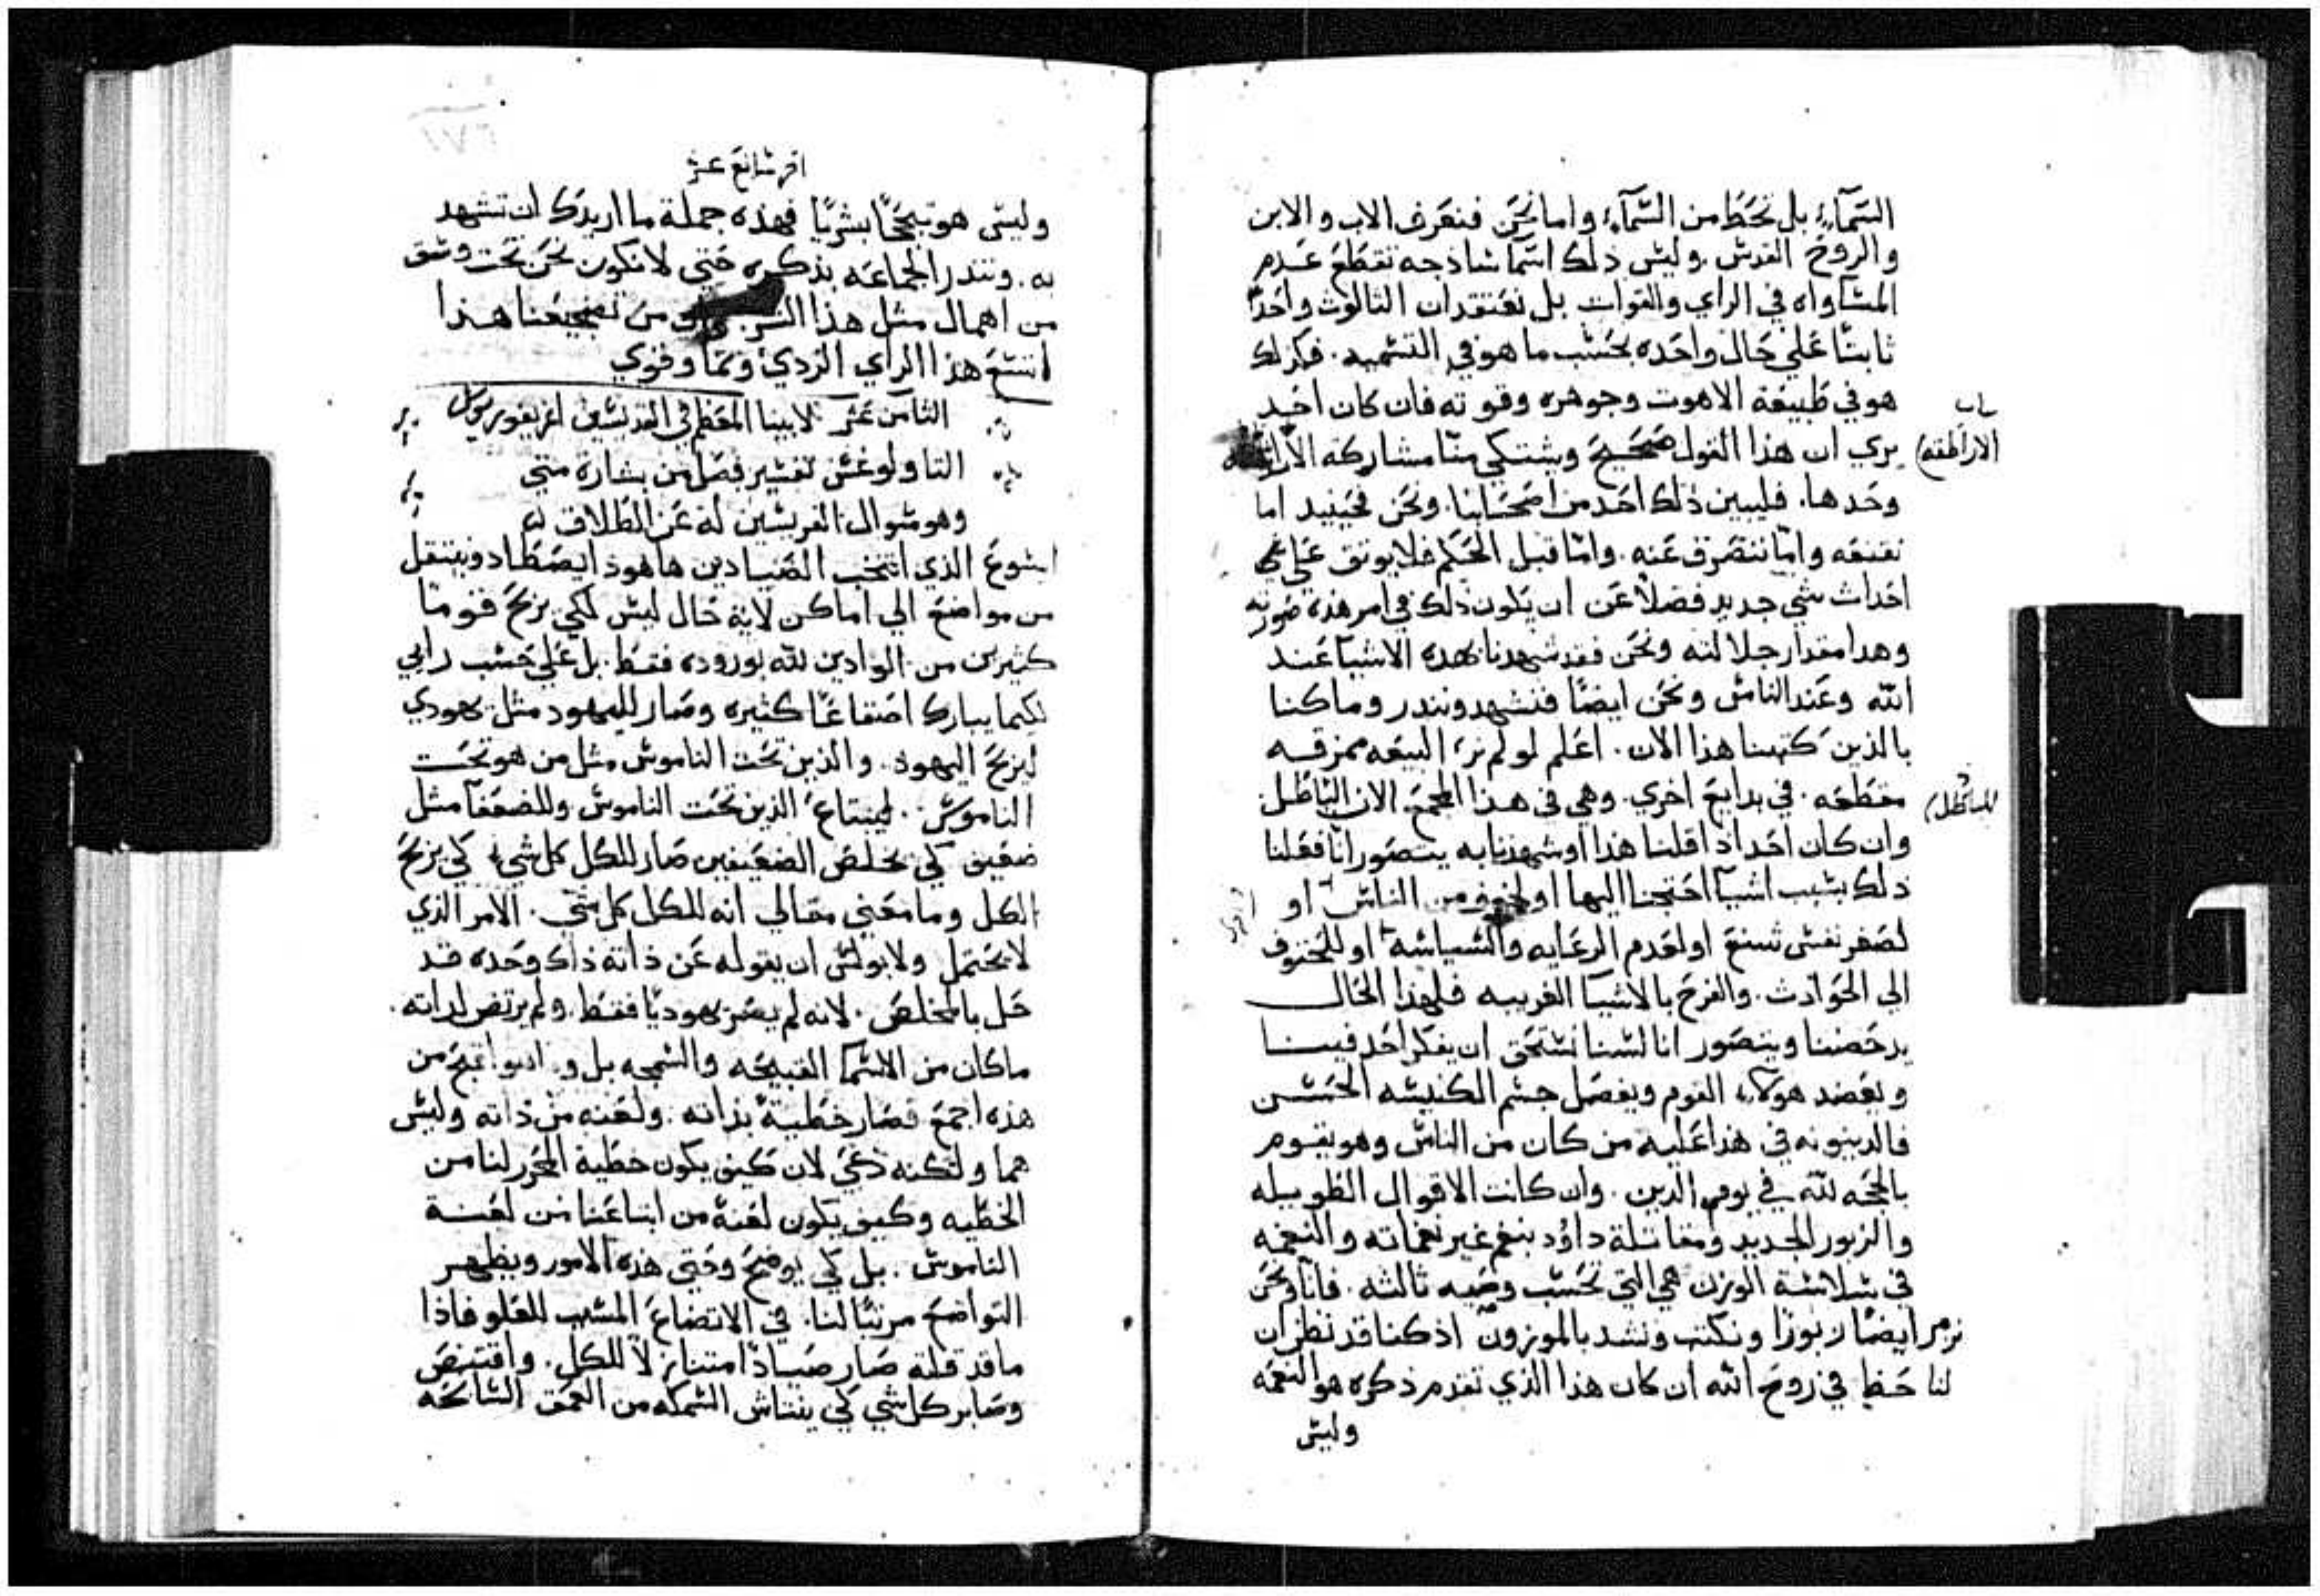 السَّمآءِ بل نحَطَ من السَّمآءِ واما نحَن فنعَرف الاب والابن
والروحَ القدسْ. وليسْ ذلك اسَما سْاذجه نقطَعَ عَدم
المسَاواه في الراي والقوات بل نعَتقد ان الثالوث واحَدًا
ثابتًا عَلي حَال واحَده بحَسْب ما هو في التسْميه. فكذلك
هو في طَبيعَة الاهوت وجوهره وقوته فان كان احَد
يري ان هذا القول صَحَيحَ ويشتكي منّا مشاركة
الاراطقه
وحَدها. فليبين ذلك احَد من اصَحَابنا. ونحَن فحَينيد اما
نقنعَه واما ننصَرف عَنه. وامّا قبل الحَكم فلا يوثق عَلي
احَداث شي جديد فضلاً عَن ان يكون ذلك في امر هذه صَورته
وهدا مقدار جلالته ونحَن فقد شهدنا بهده الاشيا عَند
اللّه وعَند الناسْ ونحَن ايضًا فنشهد وننذر وما كنا
بالذين كتبنا هذا الان. اعَلم لو لم نرَ البيعَه ممزقه
مقطَعَه. في بدايعَ اخري. وهي في هذا المجمعَ الان الباطَل
للباطل
وان كان احَد اد اقلنا هذا او شهدنا به يتصَور انّا فعَلنا
ذلك بسْبب اشيآ احَتجنا اليها او لخوف من الناسْ او
لصَغر نفسْ تسْنعَ او لعَدم الرعَايه والسْياسْه او للحَتوف
الي الحَوادث. والفرحَ بالاشيا الغريبه فلهذا الحَال
يدحَضننا ويتصَور انا لسْنا نسْتحَق ان يفكر احَد فينا
ويعَضد هولآء القوم ويفصَل جسْم الكنيسْه الحَسَن
فالدينونه في هذا عَليه من كان من الناسْ وهو يقوم
بالحَجه للّه في يوم الدين. وان كانت الاقوال الطَويله
والزبور الجديد ومقابلة داوُد بنغم غير نغماته والنعمه
في سْلاسْة الوزن هي التي تحَسْب وصَيه ثالثه. فانّا ونحَن
نزمر ايضًا زبورًا ونكتب وننشد بالموزون اذ كنا قد نظن ان
لنا حَظا في روحَ اللّه ان كان هذا الذي تقدم ذكره هو النعَمه
وليسْ
وليسْ هو تبجحًَا بشريًا فهذه جملة ما اريدك ان تشهد
به. وتنذر الجماعَه بذكره حَتي لا نكون نحَن تحَت وسْق
من اهمال مثل هذا من تضجيعَنا هذا
اتسْعَ هذا الراي الردي ونمَا وقوي
الثامن عَشر لابينا المعَظم في القديسْين اغريغوريوسْ
التاولوغسْ تفسْير فصَل من بشارة متي
وهو سْوال الفريسْين له عَن الطَلاق
ايسْوعَ الذي انتخب الصَيادين ها هوذا يصَطَاد وينتقل
من مواضعَ الي اماكن لاية حَال ليسْ لكي يربحَ قومًا
كثيرين من الوادين للّه بوروده فقط. بل عَلي حَسْب رايي
لكيما يبارك اصَقاعًَا كثيره وصَار لليهود مثل يهودي
ليربحَ اليهود. والذين تحَت الناموسْ مثل من هو تحَت
الناموسْ. ليبتاعَ الذين تحَت الناموسْ وللضعَفآ مثل
ضعَيف كي يخلصَ الضعَيفين صَار للكل كل شيء كي يربحَ
الكل وما معَني مقالي انه للكل كل شي. الامر الذي
لا يحَتمل ولا بولسْ ان يقوله عَن ذاته ذاك وحَده قد
حَل بالمخلصَ. لانه لم يصَر يهوديًا فقط. ولم يرتض لداته.
ما كان من الاسْما القبيحَه والسْمجه بل و اقبحَ من
هذه اجمعَ فصَار خطَيةً بذاته. ولعَنه من ذاته وليسْ
هما ولكنه دعَي لان كيف يكون خطَية المحَرر لنا من
الخطَيه وكيف يكون لعَنةً من ابتاعَنا من لعَنة
الناموسْ. بل كي يوضحَ وحَتي هذه الامور ويظهر
التواضعَ مرتبًا لنا. في الاتضاعَ المسْبب للعَلو فاذا
ما قد قلته صَار صَيادًا متنازلاً للكل. واقتنصَ
وصَابر كل شي كي ينتاش السْمكه من العَمق السْابحَه